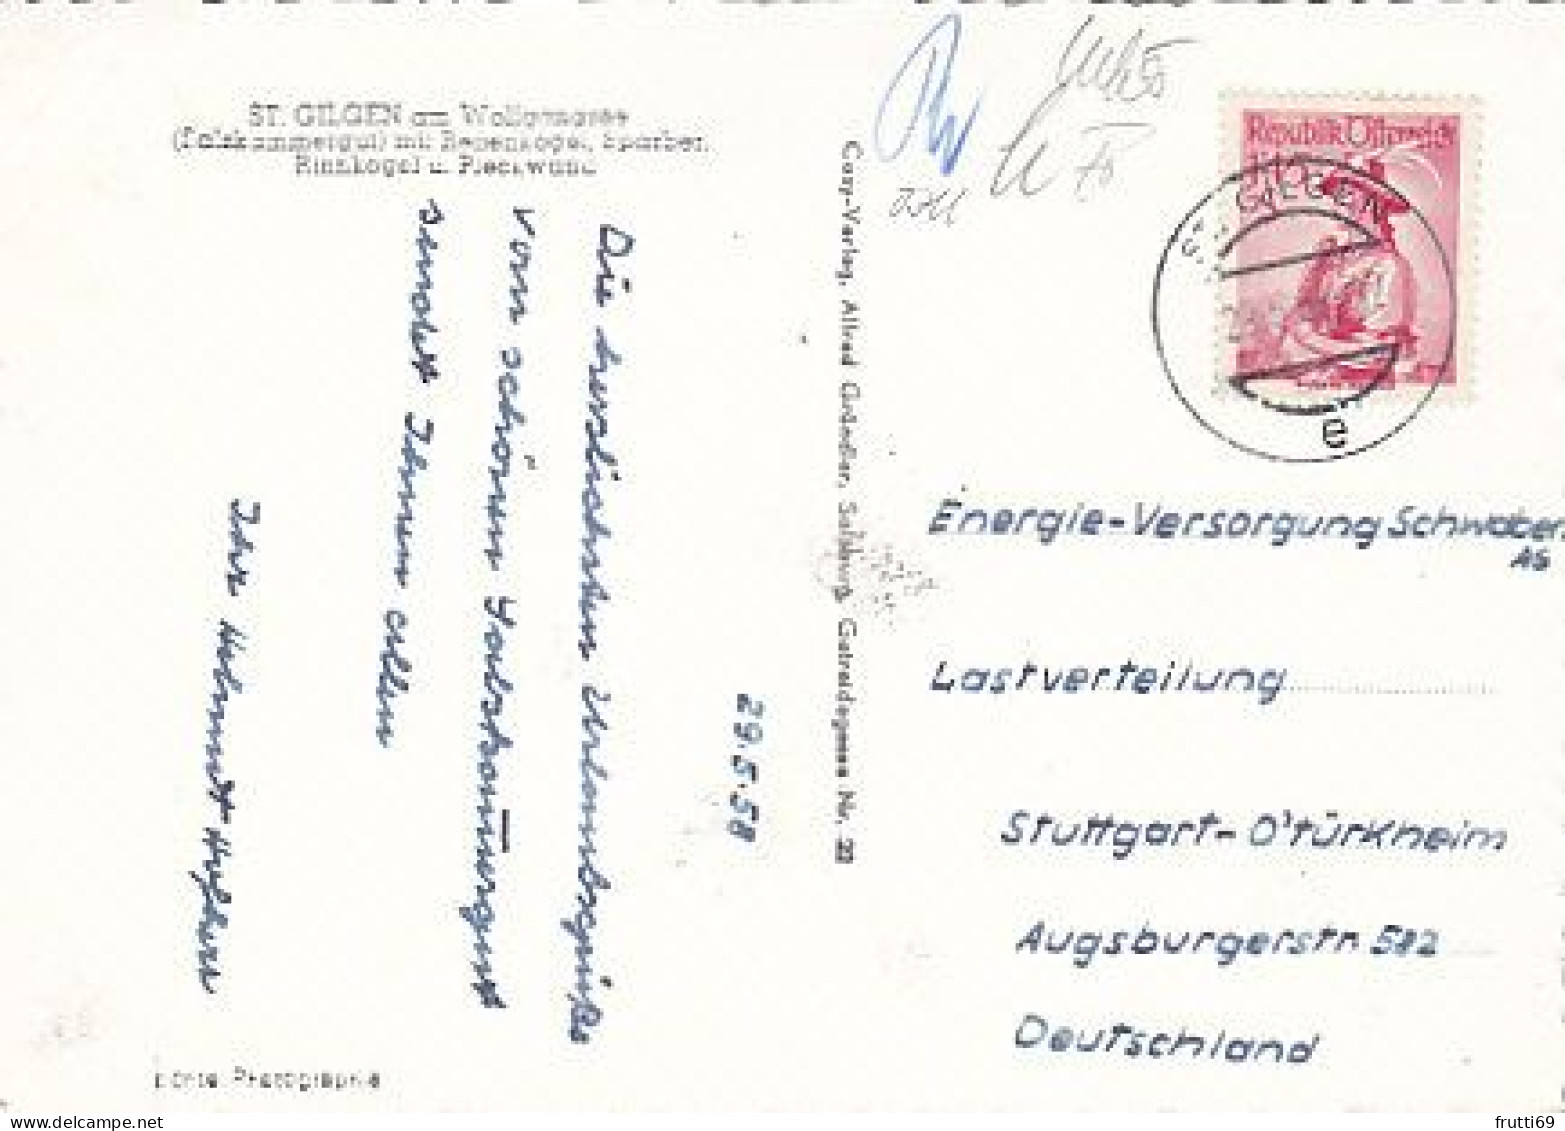 ST. GILGEN am Wolfgangsee
(Salzkammergut) mit Rettenkogel, Sparber,
Rinnkogel u. Pleckwand
29.5.58
Die herzlichsten Urlaubsgrüße
vom schönen Wolfgangsee
sendet Ihnen allen
Ihr Helmut
Echte Photographie
Cosy-Verlag, Alfred Gründler, Salzburg, Getreidegasse Nr. 22
Republik Österreich
ST. GILGEN
e
Energie-Versorgung Schwaben
AG
Lastverteilung
Stuttgart-O'türkheim
Augsburgerstr. 582
Deutschland
frutti69